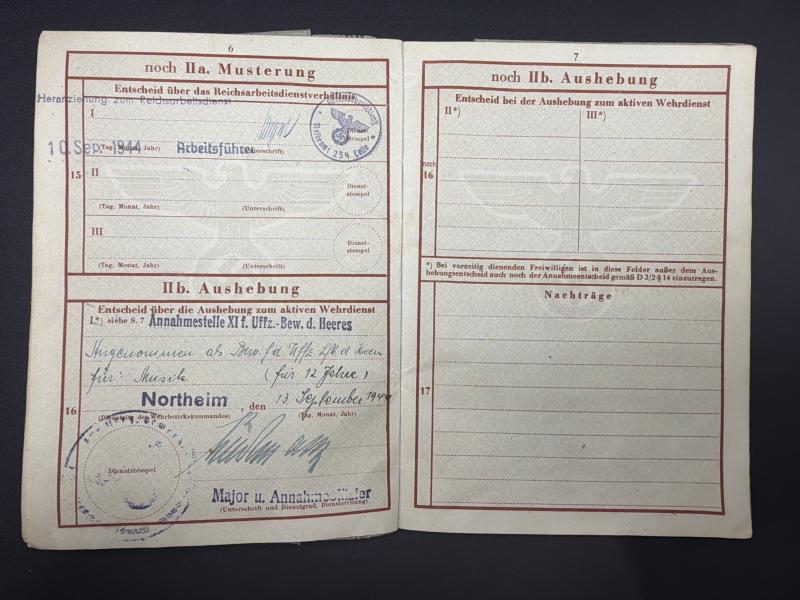 6
noch IIa. Musterung
Entscheid über das Reichsarbeitsdienstverhältnis
Heranziehung zum Reichsarbeitsdienst
I
Dienst-
stempel
Meldeamt 254 Celle
10 Sep. 1944 Arbeitsführer
(Tag, Monat, Jahr) (Unterschrift)
15 II
Dienst-
stempel
(Tag, Monat, Jahr) (Unterschrift)
III
Dienst-
stempel
(Tag, Monat, Jahr) (Unterschrift)
IIb. Aushebung
Entscheid über die Aushebung zum aktiven Wehrdienst
I.*) siehe S. 7 Annahmestelle XI f. Uffz.-Bew. d. Heeres
Angenommen als Bew. f. d. Uffz. Lfb. d. Heeres
für: Musik (für 12 Jahre)
16 Northeim, den 13. September 1944
(Dienststelle des Wehrbezirkskommandos) (Tag, Monat, Jahr)
Dienststempel
Major u. Annahmeoffizier
(Unterschrift und Dienstgrad, Dienststellung)
7
noch IIb. Aushebung
Entscheid bei der Aushebung zum aktiven Wehrdienst
II*) III*)
noch
16
*) Bei vorzeitig dienenden Freiwilligen ist in diese Felder außer dem Aus-
hebungsentscheid auch noch der Annahmeentscheid gemäß D 3/2 § 14 einzutragen.
Nachträge
17